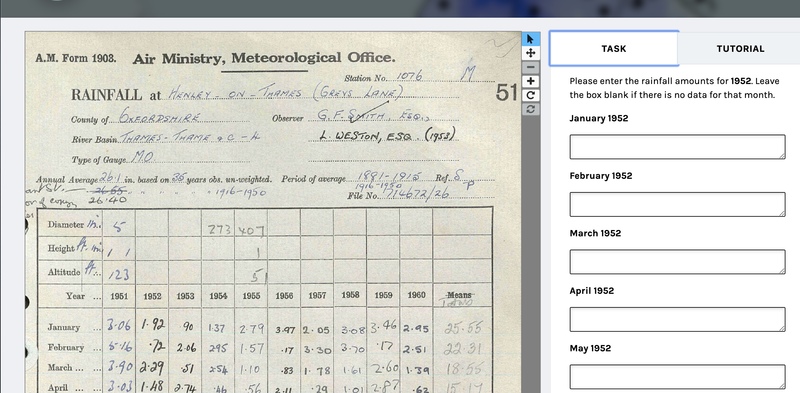 A.M. Form 1903. Air Ministry, Meteorological Office.
Station No. 1076 M
RAINFALL at HENLEY-ON-THAMES (GREYS LANE) 51
County of OXFORDSHIRE Observer G.F. SMITH, ESQ.,
River Basin THAMES-THAME &C-H L. WESTON, ESQ. (1953)
Type of Gauge MO.
Annual Average 26.1 in. based on 35 years obs. un-weighted. Period of average 1881-1915 Ref. S
26.55 " " " " 1916-1950 1916-1950 P
26.40 File No. 714672/26
Diameter In. 5 273 407
Height Ft. In. 1 1 1
Altitude Ft. 123 51
Year ... 1951 1952 1953 1954 1955 1956 1957 1958 1959 1960 Means
January ... 3.06 1.92 .90 1.37 2.79 3.97 2.05 3.08 3.46 2.95 25.55
February ... 5.16 .72 2.06 2.95 1.57 .17 3.30 3.70 .17 2.51 22.31
March ... 3.90 2.29 .51 2.54 1.10 .83 1.78 1.61 2.60 1.39 18.55
April ... 3.03 1.48 2.74 .46 .56 2.11 .29 1.01 2.87 .62 15.17
TASK
TUTORIAL
Please enter the rainfall amounts for 1952. Leave
the box blank if there is no data for that month.
January 1952
February 1952
March 1952
April 1952
May 1952